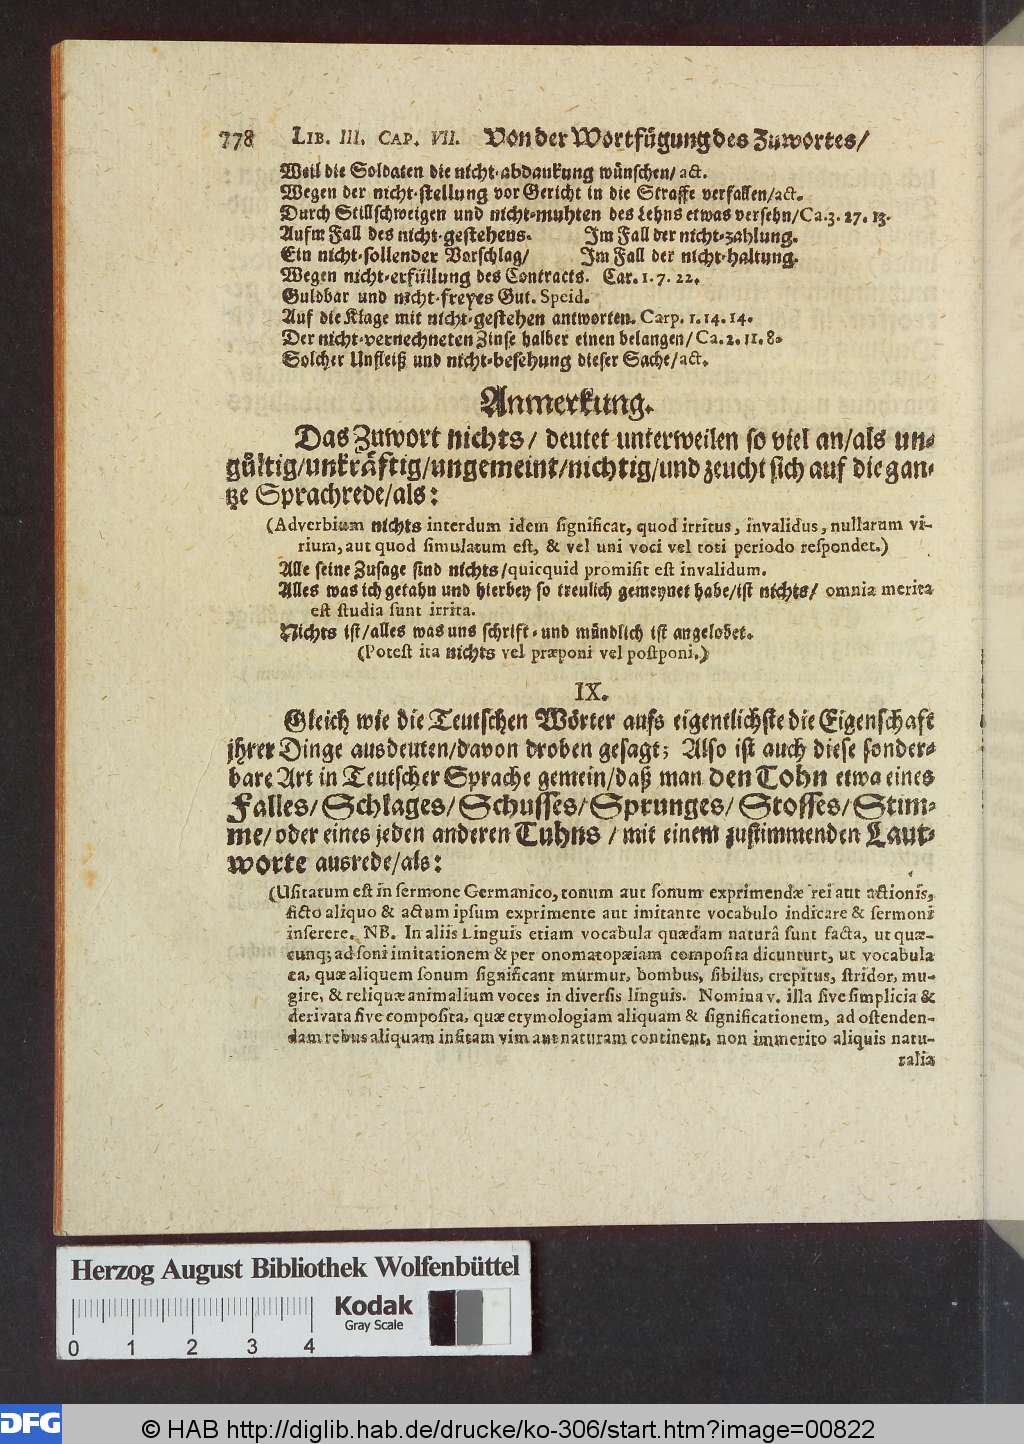 778 LIB. III. CAP. VII. Von der Wortfügung des Zuwortes/
Weil die Soldaten die nicht-abdankung wünschen/act.
Wegen der nicht-stellung vor Gericht in die Straffe verfallen/act.
Durch Stillschweigen und nicht-muhten des Lehns etwas versehn/Ca.3. 27. 13.
Aufm Fall des nicht-gestehens. Im Fall der nicht-zahlung.
Ein nicht-sollender Vorschlag/ Im Fall der nicht-haltung.
Wegen nicht-erfüllung des Contracts. Car. 1. 7. 22.
Guldbar und nicht-freyes Gut. Speid.
Auf die Klage mit nicht-gestehen antworten. Carp. 1. 14. 14.
Der nicht-verrechneten Zinse halber einen belangen/Ca. 2. 11. 8.
Solcher Unfleiß und nicht-besehung dieser Sache/act.
Anmerkung.
Das Zuwort nichts/ deutet unterweilen so viel an/als un-
gültig/unkräftig/ungemeint/nichtig/und zeucht sich auf die gan-
tze Sprachrede/als:
(Adverbium nichts interdum idem significat, quod irritus, invalidus, nullarum vi-
rium, aut quod simulatum est, & vel uni voci vel toti periodo respondet.)
Alle seine Zusage sind nichts/quicquid promisit est invalidum.
Alles was ich getahn und hierbey so treulich gemeynet habe/ist nichts/ omnia merita
est studia sunt irrita.
Nichts ist/alles was uns schrift- und mündlich ist angelobet.
(Potest ita nichts vel præponi vel postponi.)
IX.
Gleich wie die Teutschen Wörter aufs eigentlichste die Eigenschaft
jhrer Dinge ausdeuten/davon droben gesagt; Also ist auch diese sonder-
bare Art in Teutscher Sprache gemein/daß man den Tohn etwa eines
Falles/Schlages/Schusses/Sprunges/Stosses/Stim-
me/oder eines jeden anderen Tuhns/mit einem zustimmenden Laut-
worte ausrede/als:
(Usitatum est in sermone Germanico, tonum aut sonum exprimendæ rei aut actionis,
ficto aliquo & actum ipsum exprimente aut imitante vocabulo indicare & sermoni
inserere. NB. In aliis Linguis etiam vocabula quædam naturâ sunt facta, ut quæ-
cunq; ad soni imitationem & per onomatopæiam composita dicuntur, ut vocabula
ea, quæ aliquem sonum significant murmur, bombus, sibilus, crepitus, stridor, mu-
gire, & reliquæ animalium voces in diversis linguis. Nomina v. illa sive simplicia &
derivata sive composita, quæ etymologiam aliquam & significationem, ad ostenden-
dam rebus aliquam insitam vim aut naturam continent, non immerito aliquis natu-
ralia
Herzog August Bibliothek Wolfenbüttel
Kodak
Gray Scale
0 1 2 3 4
DFG
© HAB http://diglib.hab.de/drucke/ko-306/start.htm?image=00822